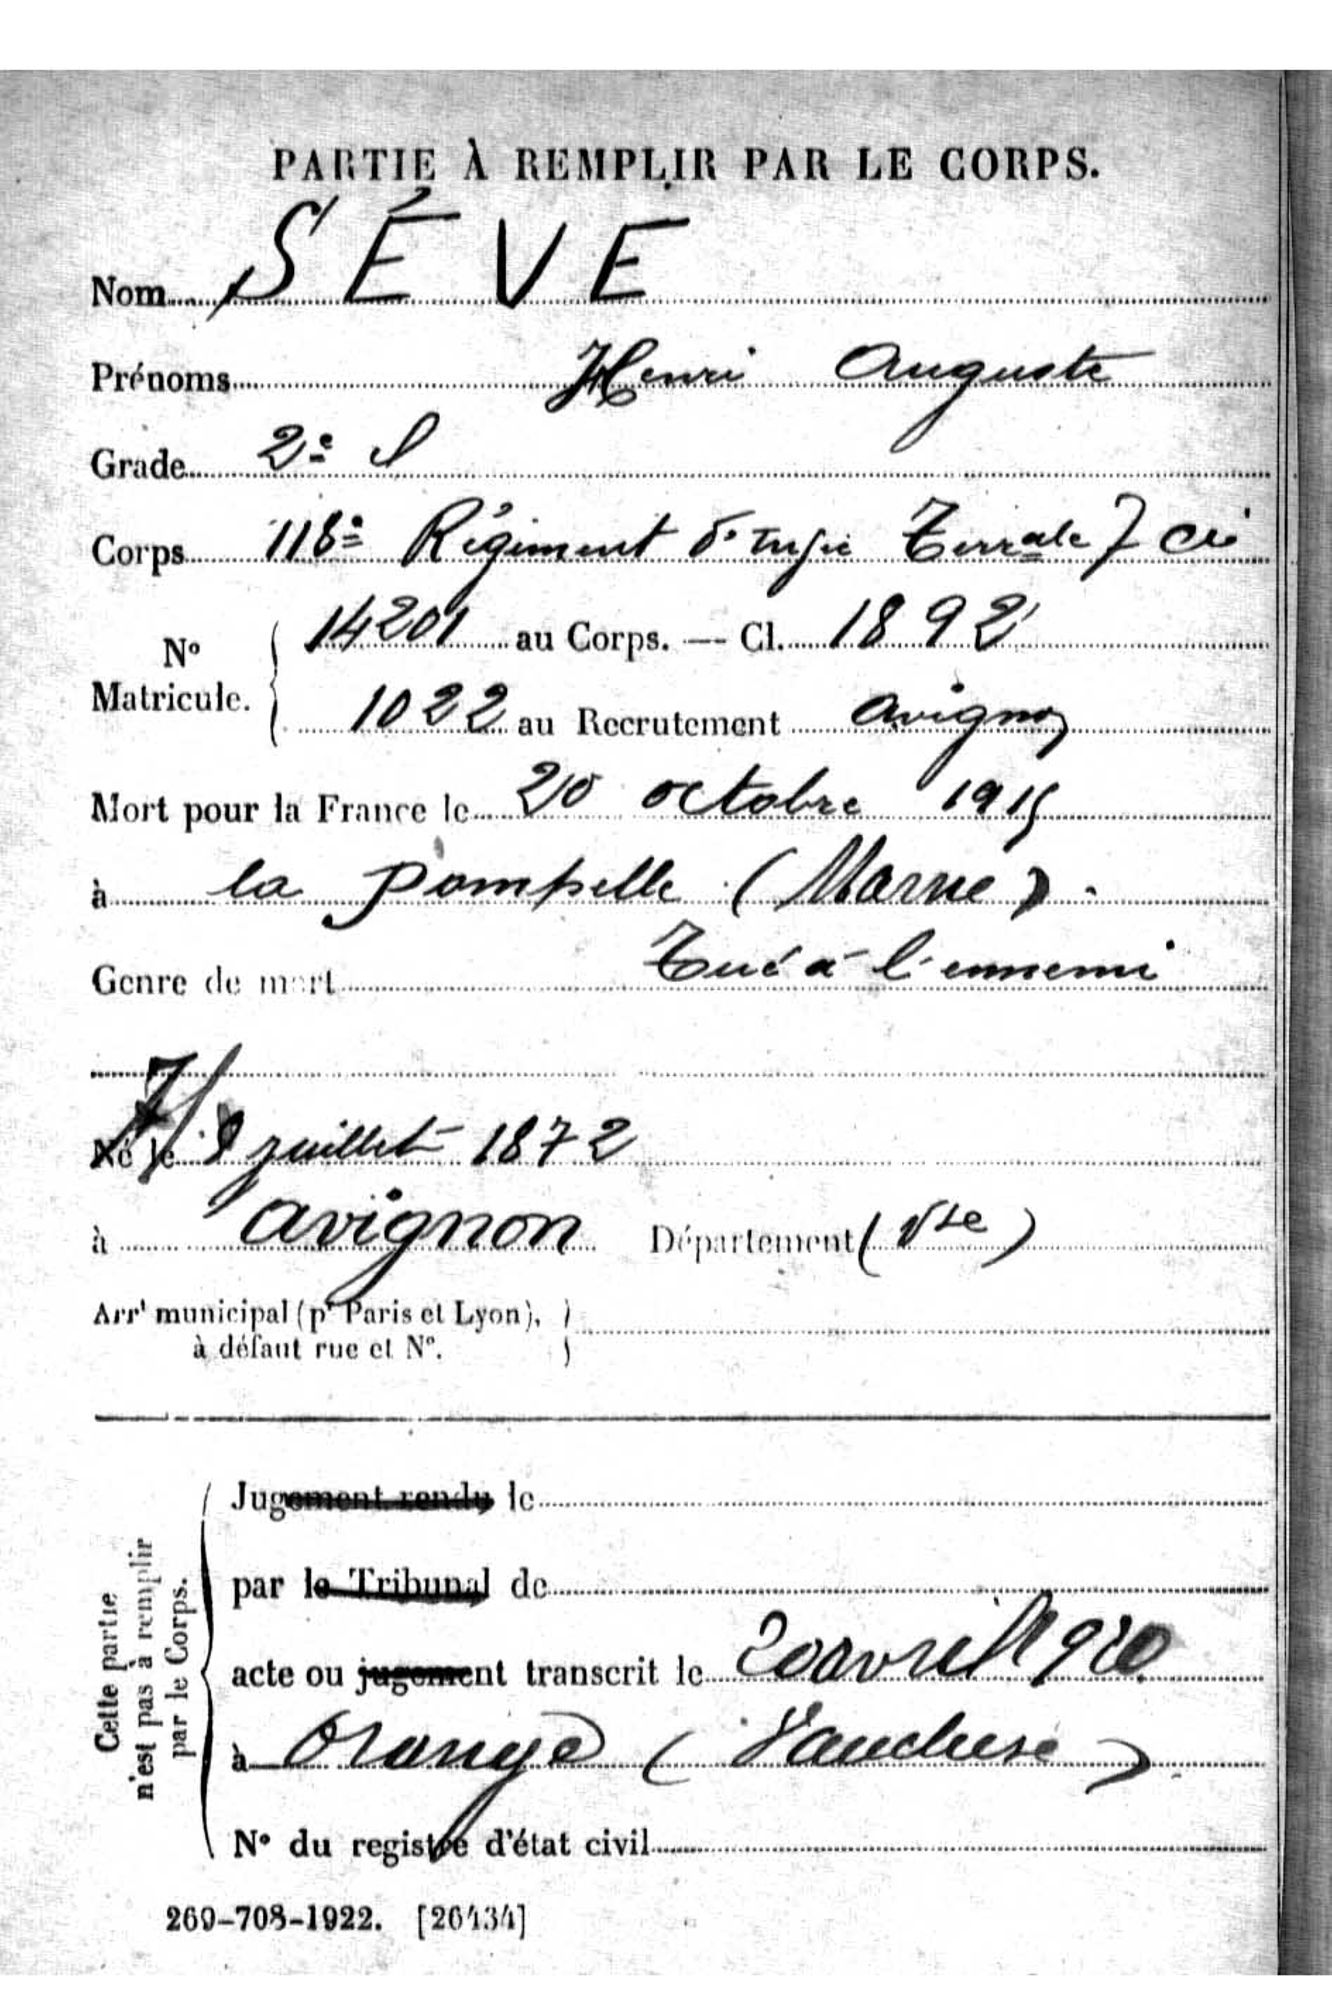 PARTIE À REMPLIR PAR LE CORPS.
Nom SÉVE
Prénoms Henri Auguste
Grade 2e S
Corps 118e Régiment d'Infie Terrale 7 Cie
No Matricule. 14201 au Corps. — Cl. 1892
1022 au Recrutement avignon
Mort pour la France le 20 octobre 1915
à la Pompelle (Marne).
Genre de mort Tué à l'ennemi
7/
Né le 8 juillet 1872
à avignon Département (Vse)
Arrt municipal (pr Paris et Lyon),
à défaut rue et No.
Cette partie
n'est pas à remplir
par le Corps.
Jugement rendu le
par le Tribunal de
acte ou jugement transcrit le 20 avril 1920
à Orange (Vaucluse)
No du registre d'état civil
269-708-1922. [26434]